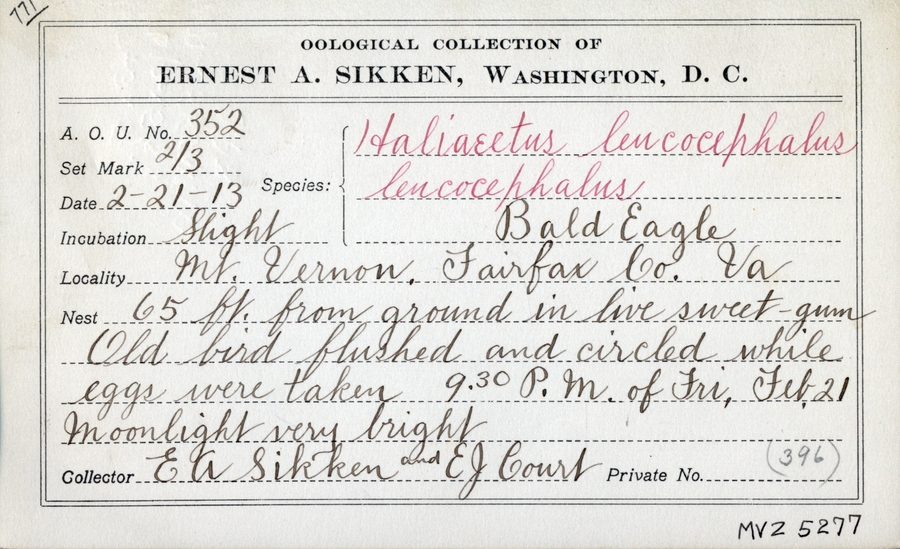 771
OOLOGICAL COLLECTION OF
ERNEST A. SIKKEN, WASHINGTON, D. C.
A. O. U. No. 352
Set Mark 2/3
Date 2-21-13
Incubation Slight
Species: Haliaeetus leucocephalus
leucocephalus
Bald Eagle
Locality Mt. Vernon, Fairfax Co. Va
Nest 65 ft. from ground in live sweet-gum
Old bird flushed and circled while
eggs were taken 9.30 P.M. of Fri, Feb, 21
Moonlight very bright
Collector E A Sikken and EJ Court Private No. (396)
MVZ 5277